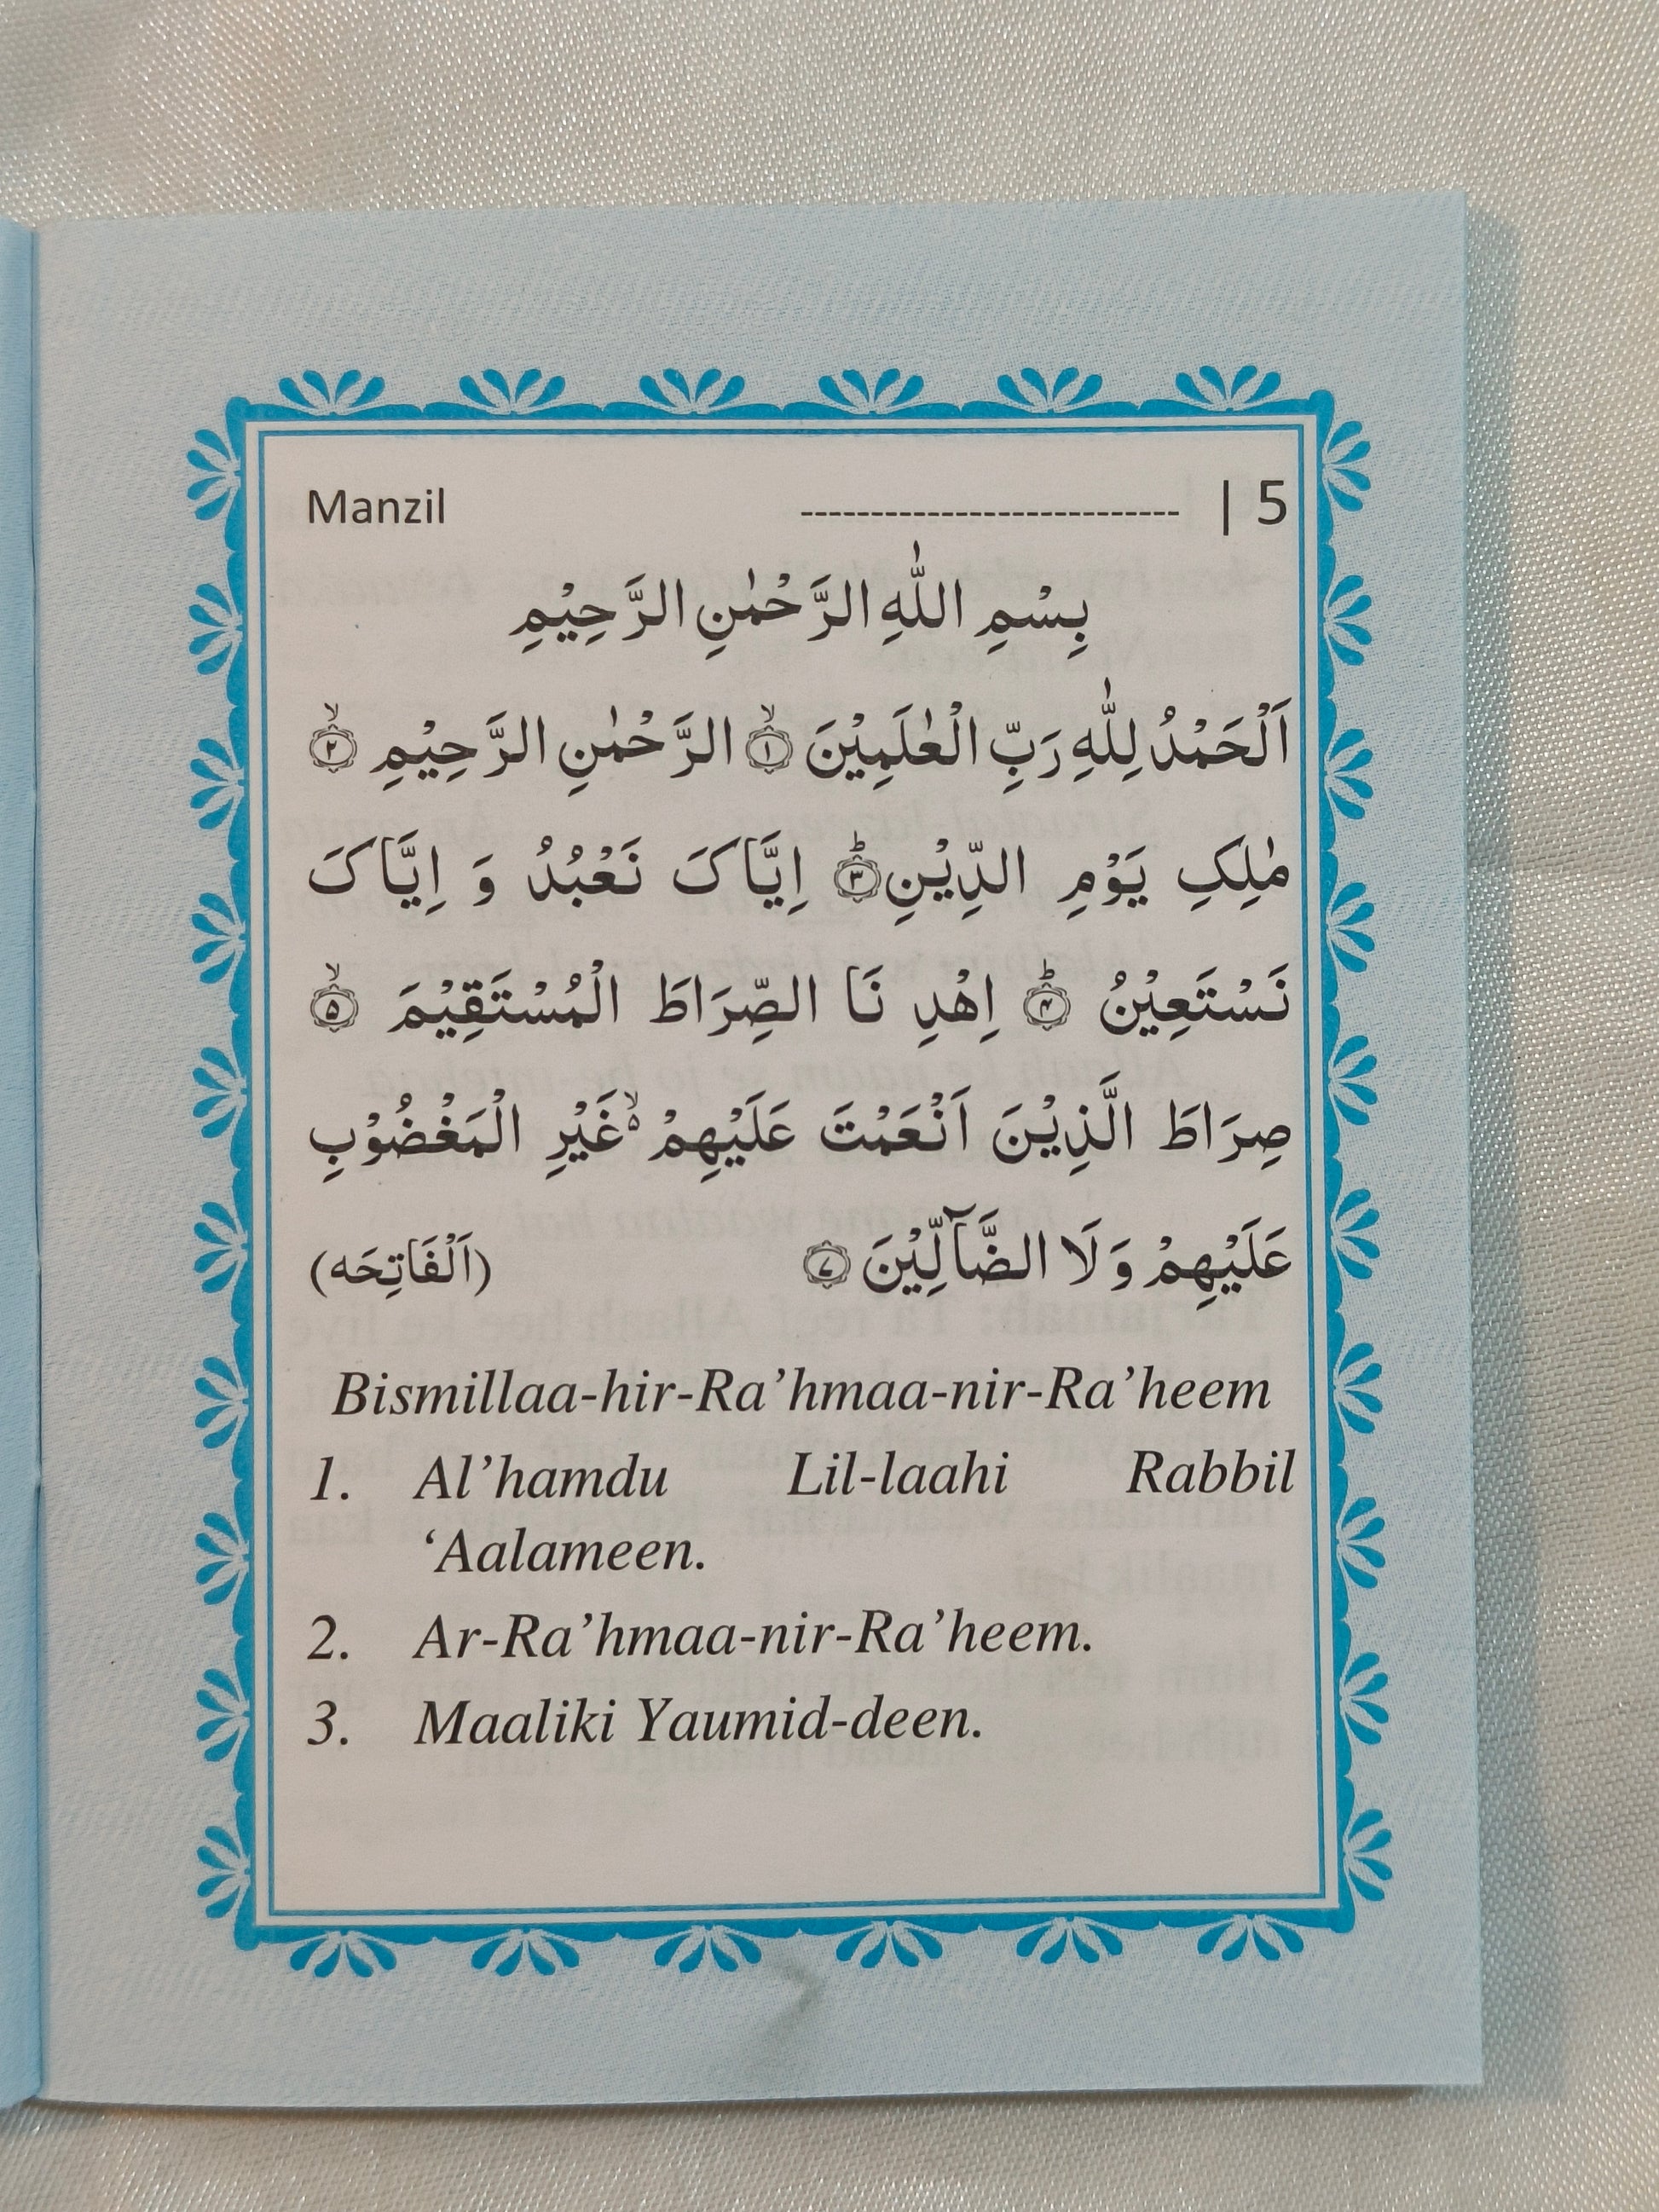 Manzil --------------------------- | 5
بِسْمِ اللّٰهِ الرَّحْمٰنِ الرَّحِيْمِ
اَلْحَمْدُ لِلّٰهِ رَبِّ الْعٰلَمِيْنَ ۙ﴿۱﴾ الرَّحْمٰنِ الرَّحِيْمِ ۙ﴿۲﴾
مٰلِكِ يَوْمِ الدِّيْنِ ؕ﴿۳﴾ اِيَّاكَ نَعْبُدُ وَ اِيَّاكَ
نَسْتَعِيْنُ ؕ﴿۴﴾ اِهْدِ نَا الصِّرَاطَ الْمُسْتَقِيْمَ ۙ﴿۵﴾
صِرَاطَ الَّذِيْنَ اَنْعَمْتَ عَلَيْهِمْ ۙ۬ غَيْرِ الْمَغْضُوْبِ
عَلَيْهِمْ وَلَا الضَّآلِّيْنَ ﴿۷﴾ (اَلْفَاتِحَه)
Bismillaa-hir-Ra’hmaa-nir-Ra’heem
1. Al’hamdu Lil-laahi Rabbil
‘Aalameen.
2. Ar-Ra’hmaa-nir-Ra’heem.
3. Maaliki Yaumid-deen.